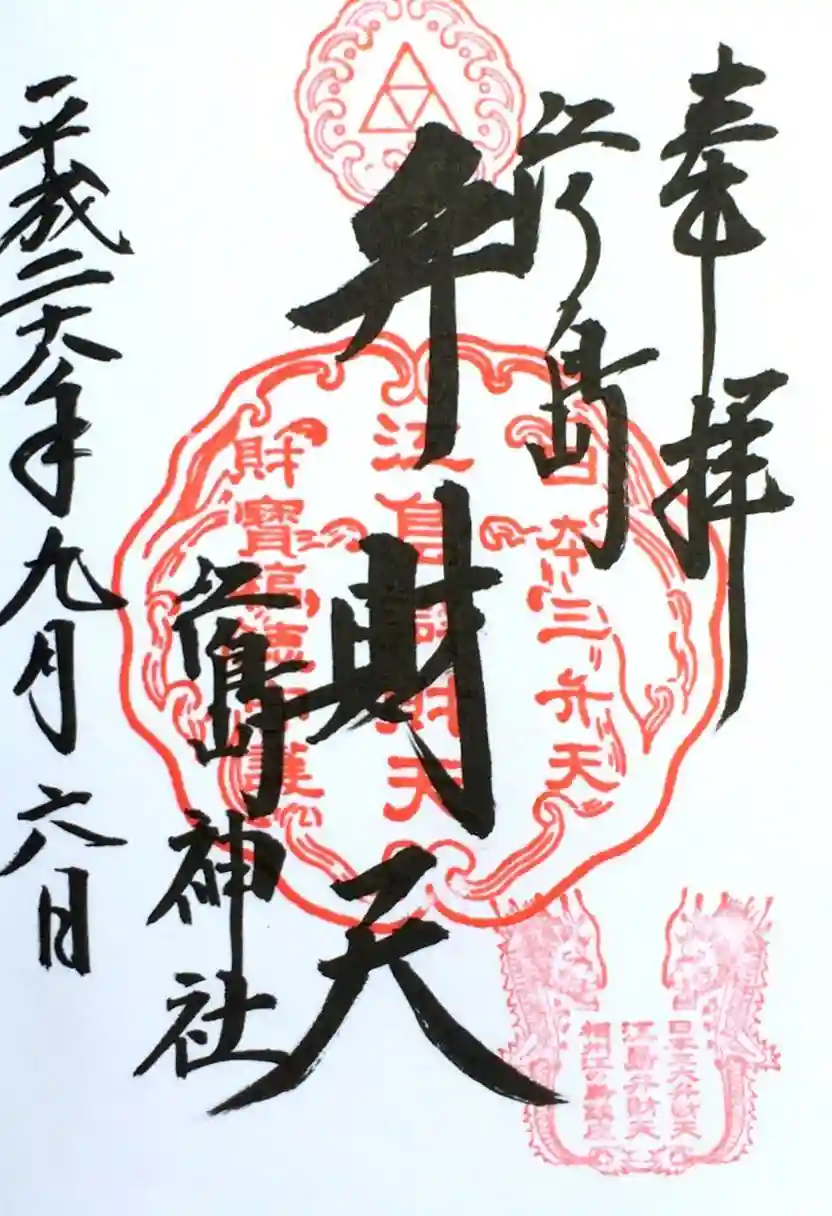 奉拝
江ノ島
弁財天
江島神社
平成二十六年九月六日
日本三弁天
江島辨財天
財寶福徳守護
日本三大弁財天
江島弁財天